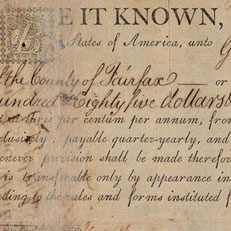 E IT KNOWN,
States of America, unto G
the County of Fairfax — or
hundred Eighty five dollars
three per centum per annum, from
clusively, payable quarter-yearly, and
enever provision shall be made therefor
is transferable only by appearance in
ding to the rules and forms instituted f